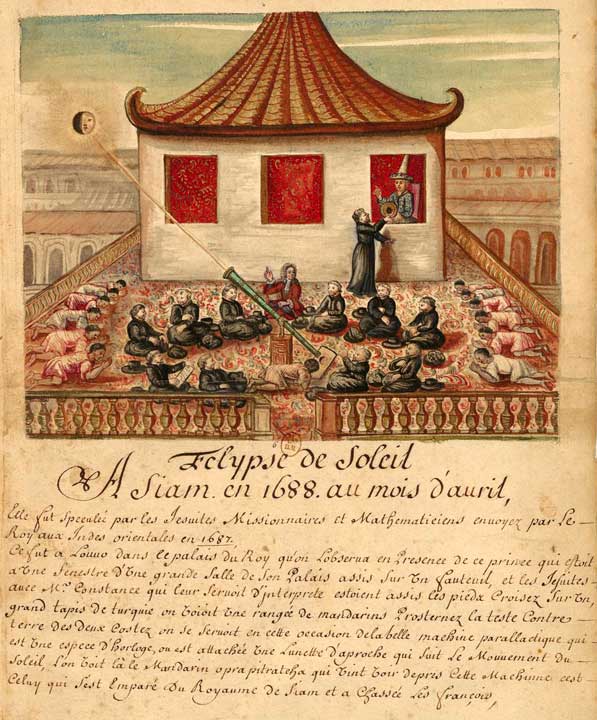 Eclypse de Soleil
A Siam. en 1688. au mois d'auril,
Elle fut speculée par les Jesuites Missionnaires et Mathematiciens envoyez par Le
Roy aux Indes orientales en 1687.
Ce fut a Louuo dans le palais du Roy qu'on L'obserua en Presence de ce prince qui estoit
a Une fenestre d'Une grande Salle de Son Palais assis Sur Un fauteuil, et les Jesuites
auec Mr. Constance qui leur Seruoit d'jnterprete estoient assis les pieds Croisez Sur Un
grand tapis de turquie on Voioit Une rangée de mandarins Prosternez la teste Contre
terre des Deux Costez on se Seruoit en cette occasion de la belle machine parallactique qui
est Une espece d'horloge, ou est attachée Une Lunette d'aproche qui Suit Le Mouuement du
Soleil, L'on Voit là le Mandarin oprapitratcha qui Vint Voir de pres Cette Machinne cest
Celuy qui S'est Emparé du Royaume de Siam et a Chassée Les françois,